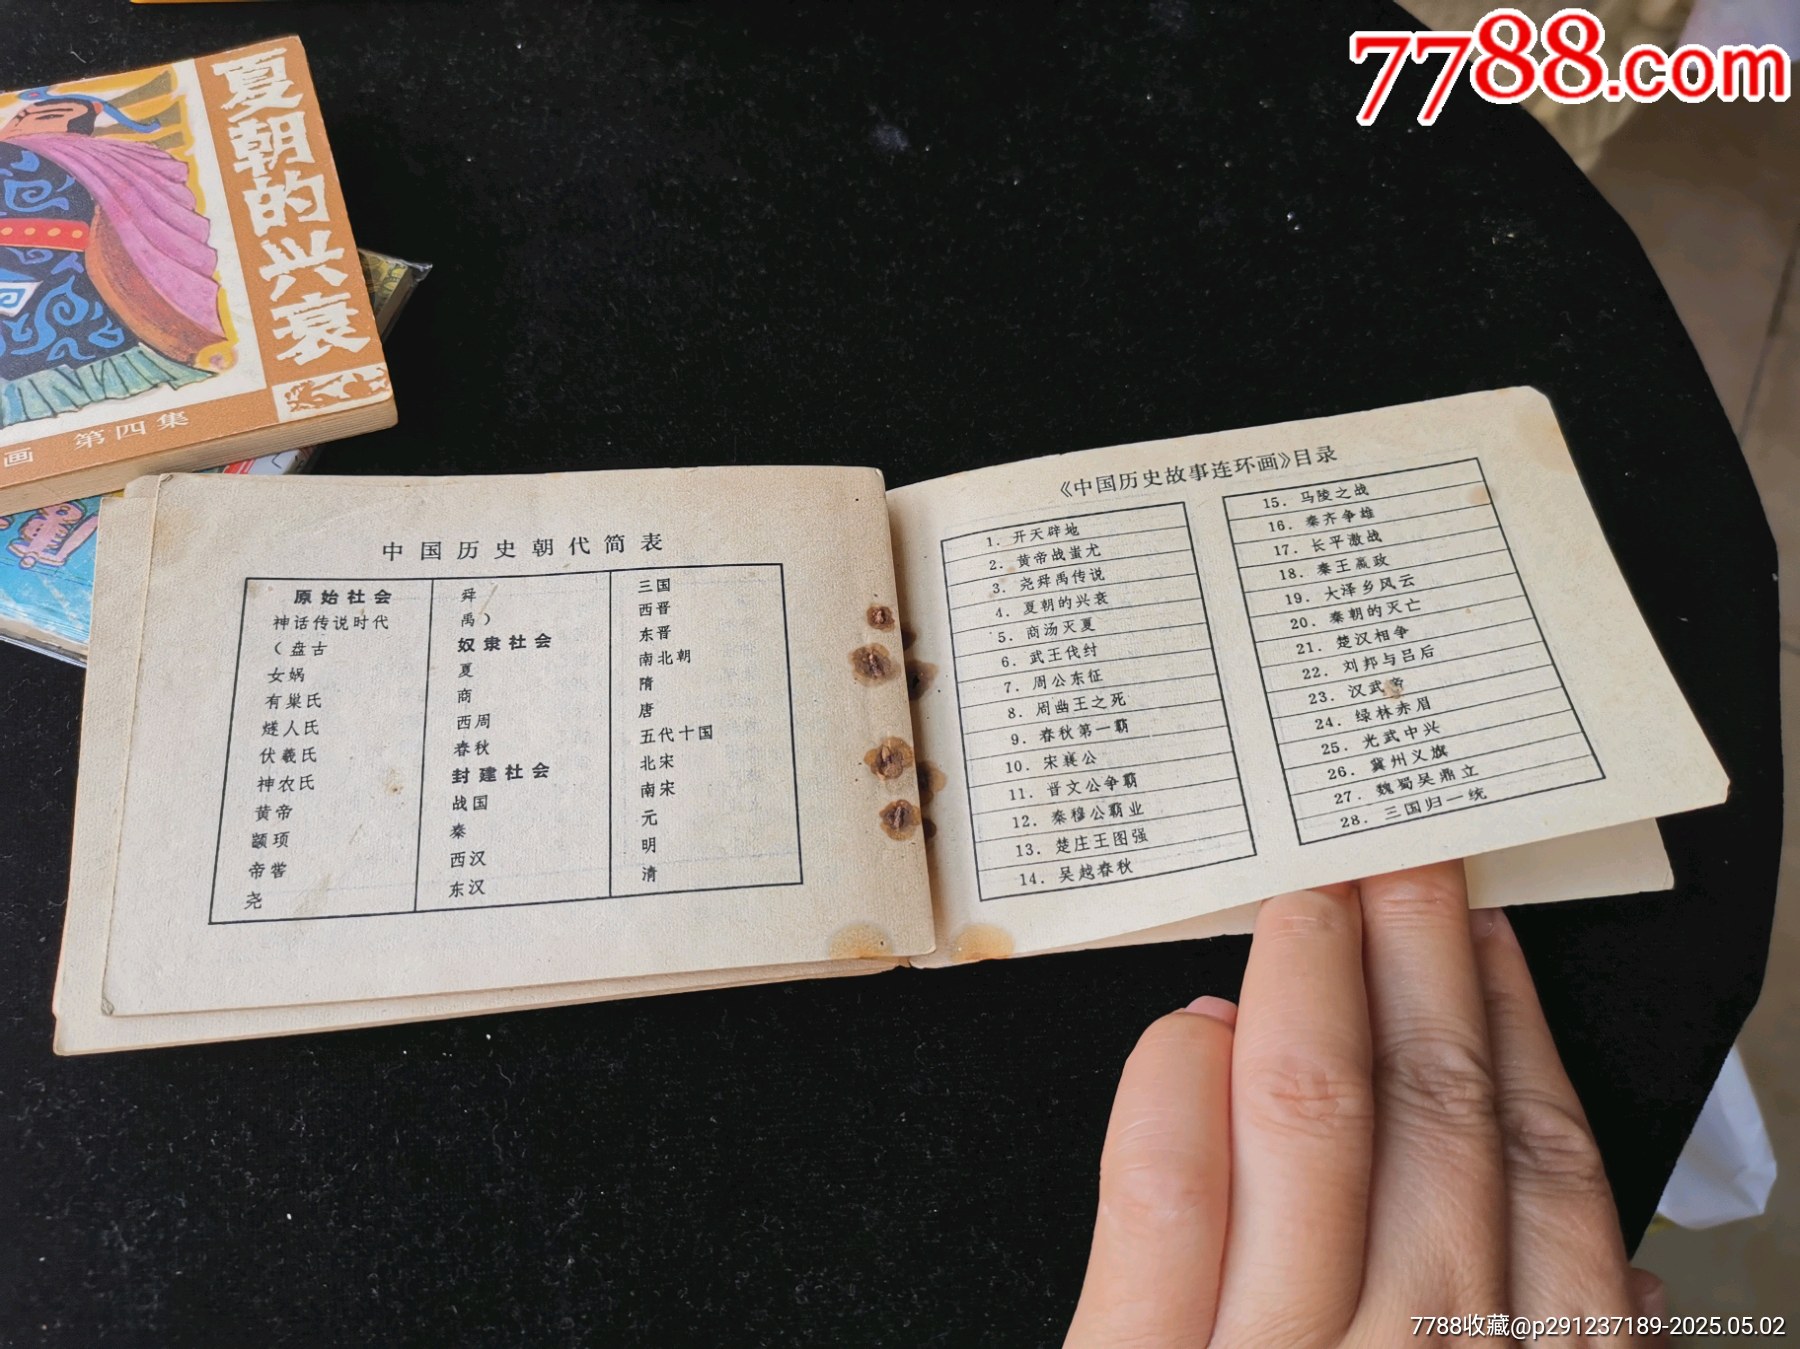 7788.com
夏朝的兴衰
画 第四集
中国历史朝代简表
原始社会
神话传说时代
(盘古
女娲
有巢氏
燧人氏
伏羲氏
神农氏
黄帝
颛顼
帝喾
尧
舜
禹)
奴隶社会
夏
商
西周
春秋
封建社会
战国
秦
西汉
东汉
三国
西晋
东晋
南北朝
隋
唐
五代十国
北宋
南宋
元
明
清
《中国历史故事连环画》目录
1. 开天辟地
2. 黄帝战蚩尤
3. 尧舜禹传说
4. 夏朝的兴衰
5. 商汤灭夏
6. 武王伐纣
7. 周公东征
8. 周幽王之死
9. 春秋第一霸
10. 宋襄公
11. 晋文公争霸
12. 秦穆公霸业
13. 楚庄王图强
14. 吴越春秋
15. 马陵之战
16. 秦齐争雄
17. 长平激战
18. 秦王嬴政
19. 大泽乡风云
20. 秦朝的灭亡
21. 楚汉相争
22. 刘邦与吕后
23. 汉武帝
24. 绿林赤眉
25. 光武中兴
26. 冀州义旗
27. 魏蜀吴鼎立
28. 三国归一统
7788收藏@p291237189-2025.05.02